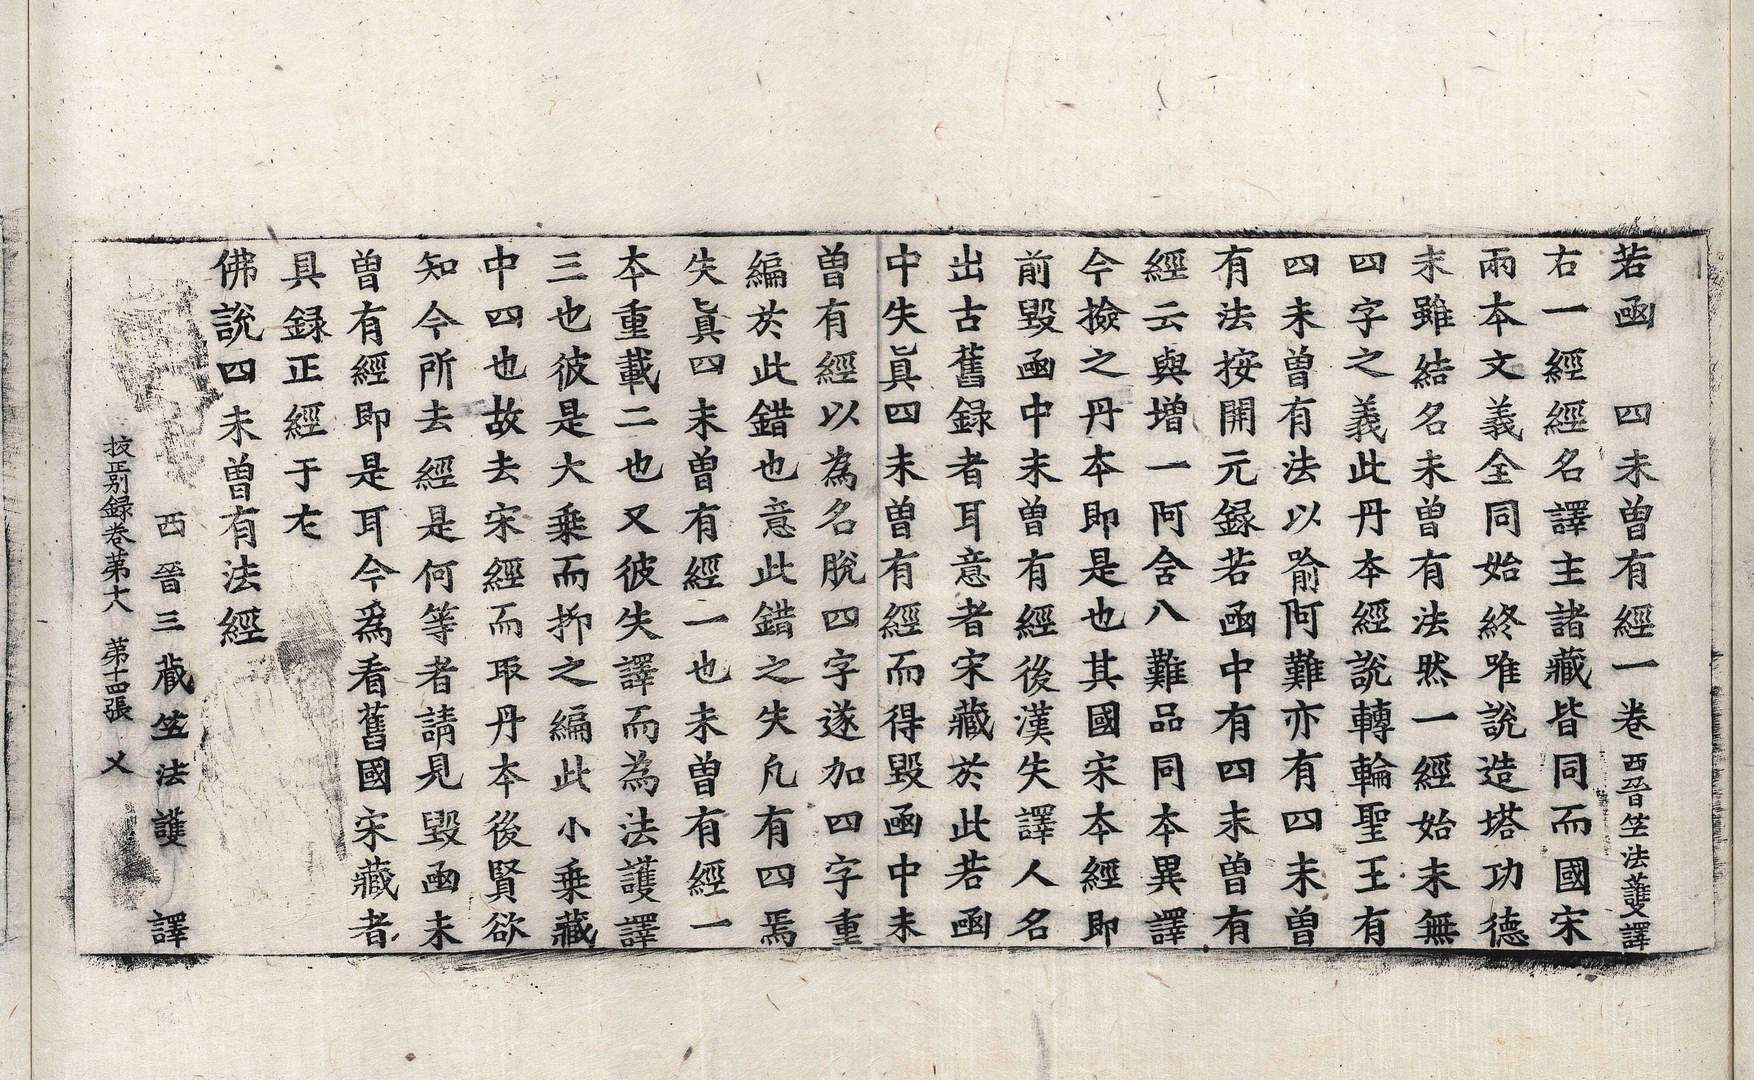 若函　四未曾有經一卷 西晉竺法護譯
右一經經名譯主諸藏皆同而國宋
兩本文義全同始終唯說造塔功德
末雖結名未曾有法然一經始末無
四字之義此丹本經說轉輪聖王有
四未曾有法以喻阿難亦有四未曾
有法按開元録若函中有四未曾有
經云與增一阿含八難品同本異譯
今撿之丹本即是也其國宋本經即
前毀函中未曾有經後漢失譯人名
出古舊録者耳意者宋藏於此若函
中失眞四未曾有經而得毀函中未
曾有經以為名脫四字遂加四字重
編於此錯也意此錯之失凡有四焉
失眞四未曾有經一也未曾有經一
本重載二也又彼失譯而為法護譯
三也彼是大乘而抑之編此小乘藏
中四也故去宋經而取丹本後賢欲
知今所去經是何等者請見毀函未
曾有經即是耳今爲看舊國宋藏者
具録正經于左
佛說四未曾有法經
西晉三藏竺法護　譯
挍正別録卷第十八　第十四張　乂